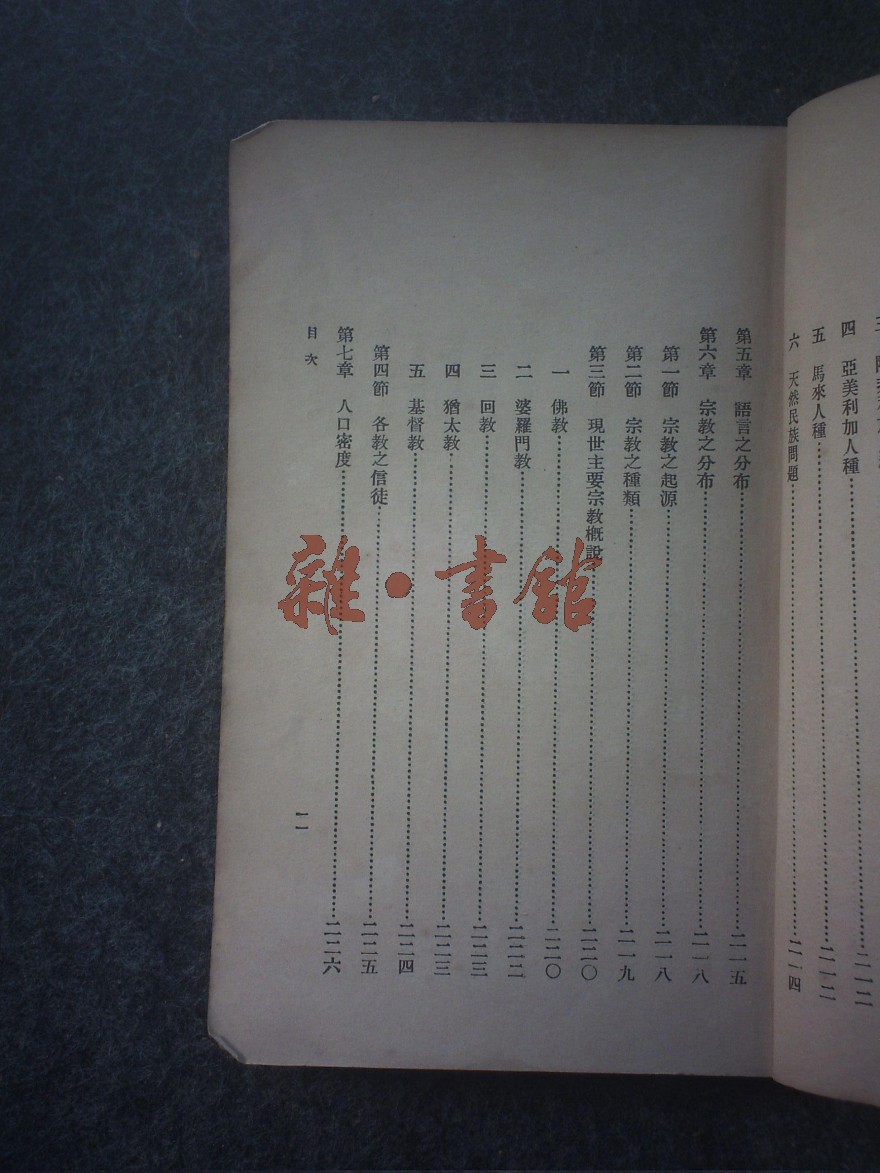 四 亞美利加人種……二一二
五 馬來人種……二一二
六 天然民族問題……二一四
第五章 語言之分布……二一五
第六章 宗教之分布……二一八
第一節 宗教之起源……二一八
第二節 宗教之種類……二一九
第三節 現世主要宗教概說……二二〇
一 佛教……二二〇
二 婆羅門教……二二二
三 回教……二二三
四 猶太教……二二三
五 基督教……二二四
第四節 各教之信徒……二二五
第七章 人口密度……二二六
目次
一一
雜·書館